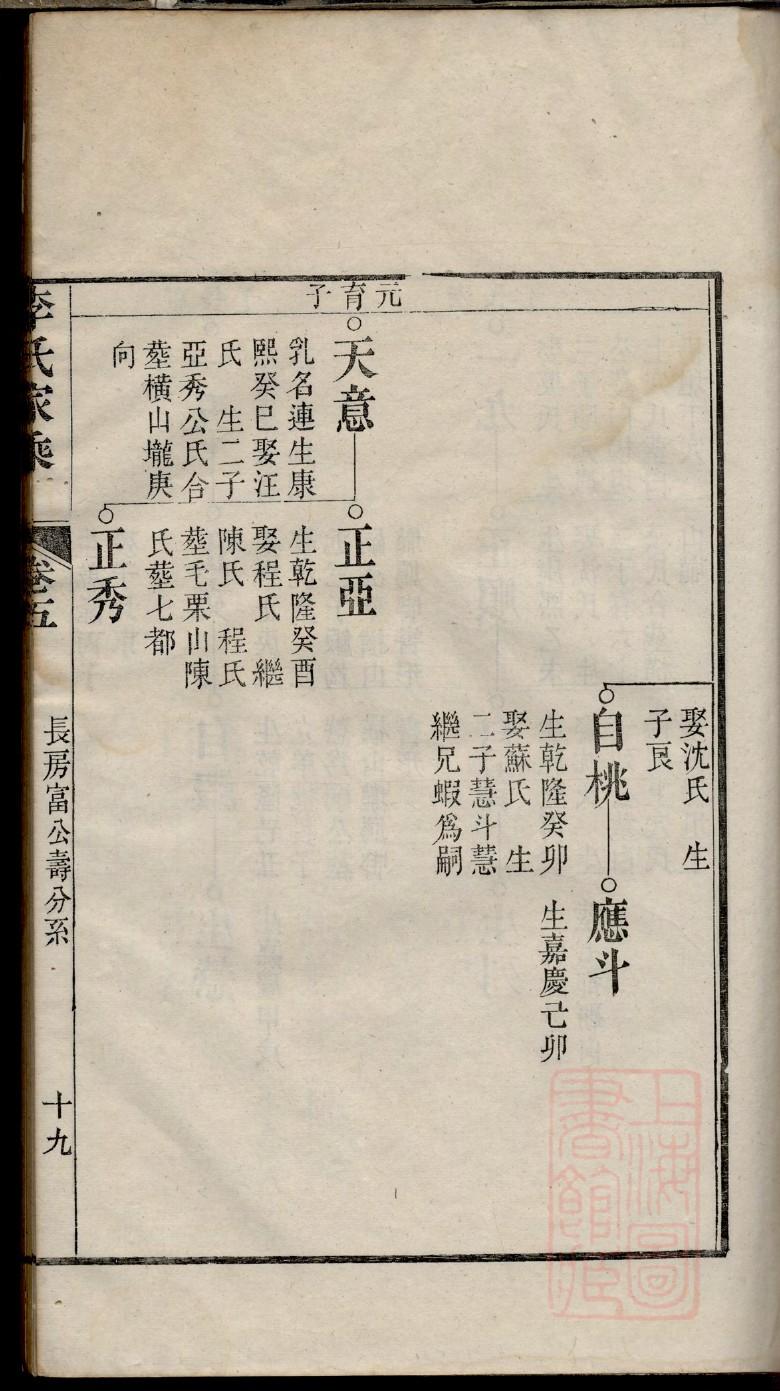 娶沈氏 生
子良
自桃
生乾隆癸卯
娶蘇氏 生
二子慧斗慧
繼兄蝦為嗣
應斗
生嘉慶己卯
元育子
天意
乳名連生康
熙癸巳娶汪
氏 生二子
亞秀公氏合
塟橫山壠庚
向
正亞
生乾隆癸酉
娶程氏 繼
陳氏 程氏
塟毛栗山陳
氏塟七都
正秀
李氏家乘
卷五
長房富公壽分系
十九
上海圖
書館藏